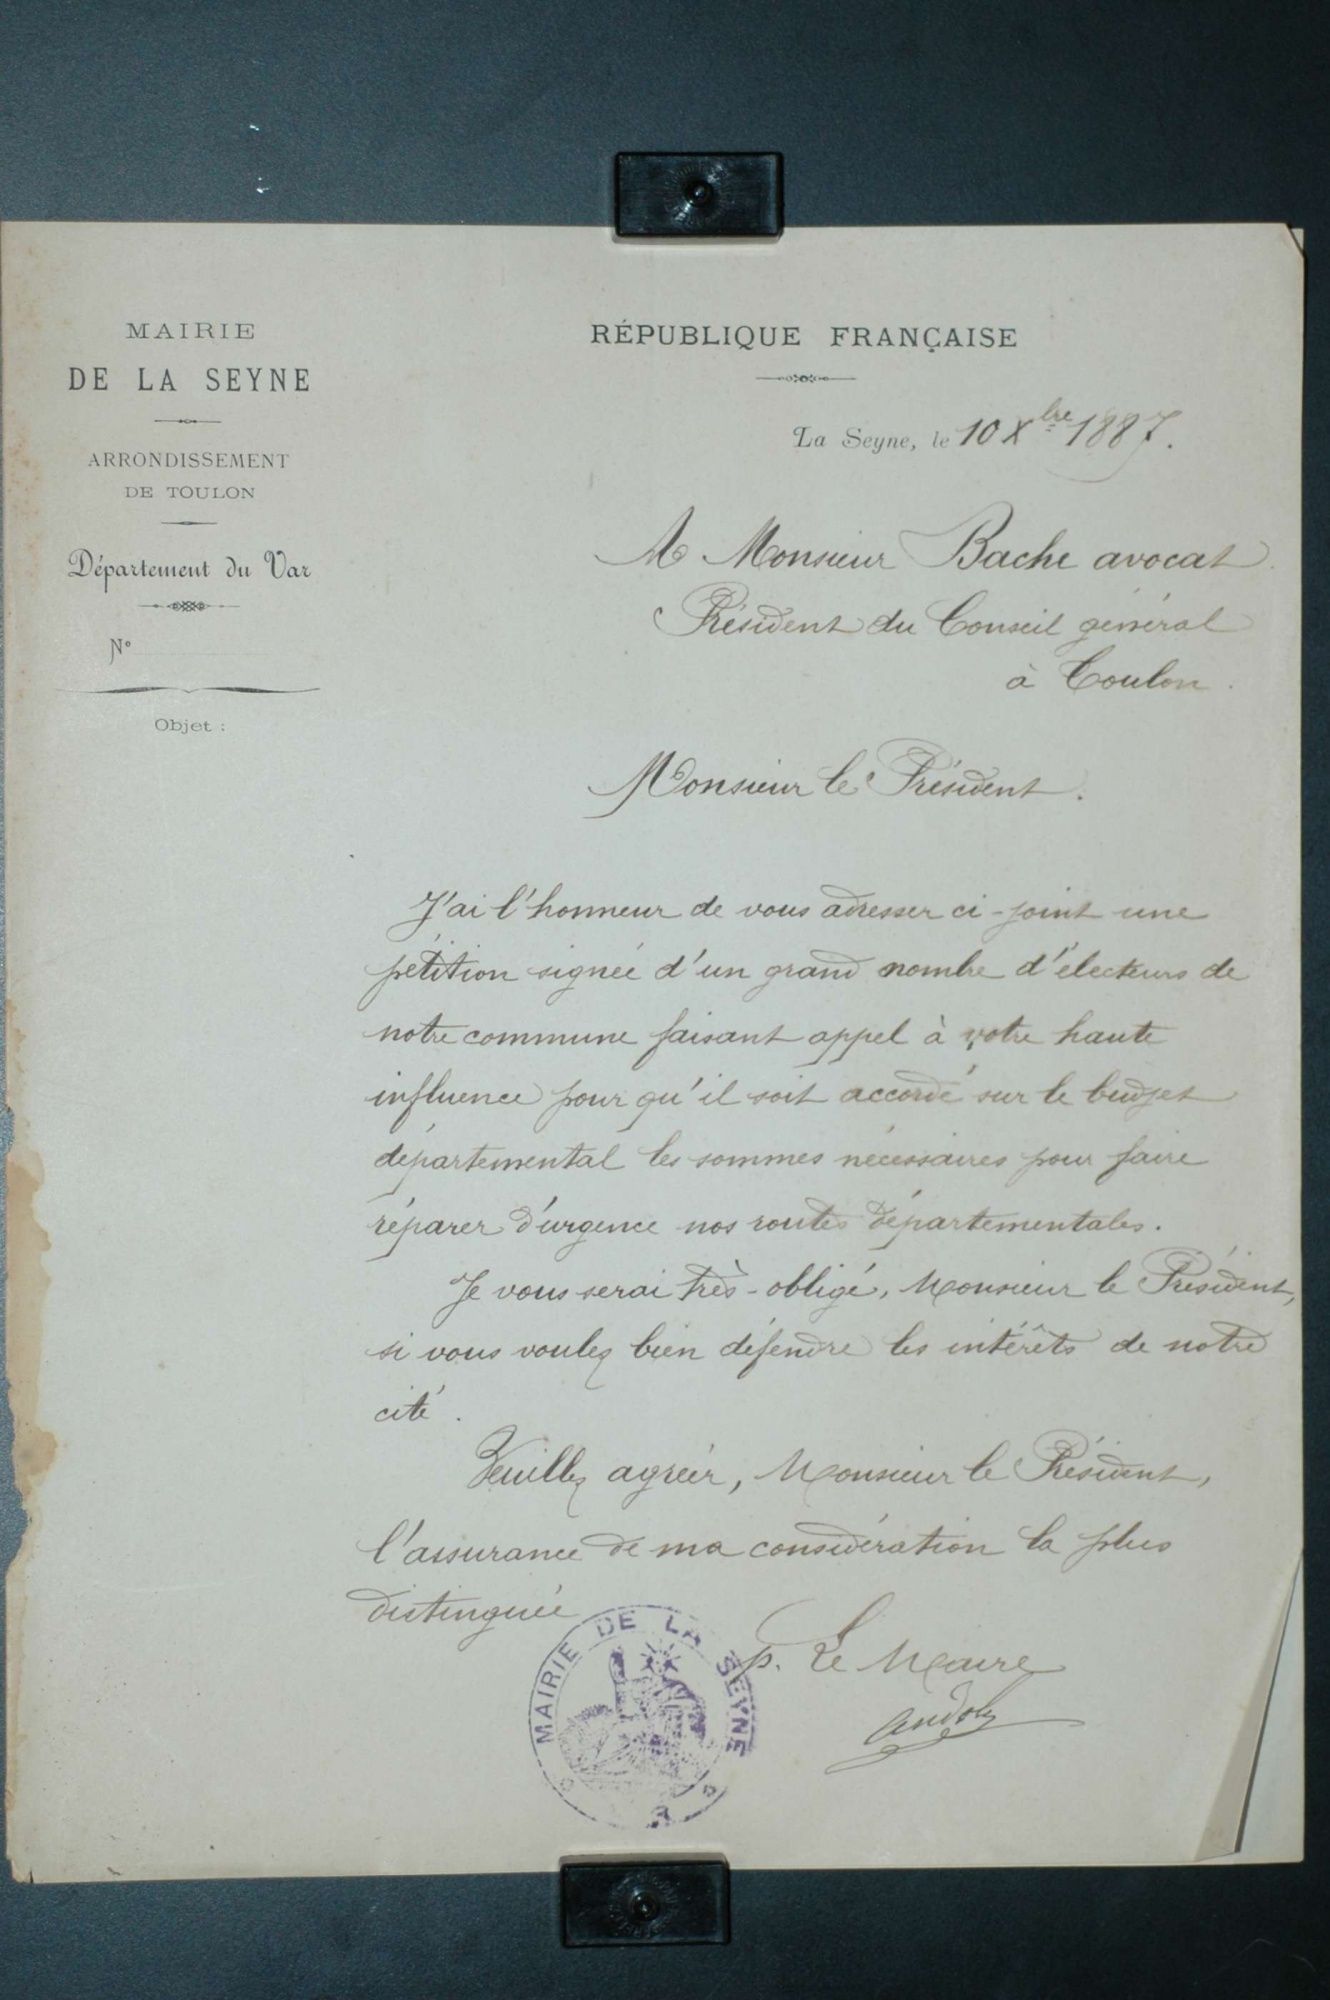 MAIRIE
DE LA SEYNE
ARRONDISSEMENT
DE TOULON
Département du Var
N°
Objet :
RÉPUBLIQUE FRANÇAISE
La Seyne, le 10 Xbre 1887.
A Monsieur Bache avocat
Président du Conseil général
à Toulon.
Monsieur le Président.
J'ai l'honneur de vous adresser ci-joint une
pétition signée d'un grand nombre d'électeurs de
notre commune faisant appel à votre haute
influence pour qu'il soit accordé sur le budget
départemental les sommes nécessaires pour faire
réparer d'urgence nos routes départementales.
Je vous serai très-obligé, Monsieur le Président,
si vous voulez bien défendre les intérêts de notre
cité.
Veuillez agréer, Monsieur le Président,
l'assurance de ma considération la plus
distinguée
p. Le Maire
MAIRIE DE LA SEYNE